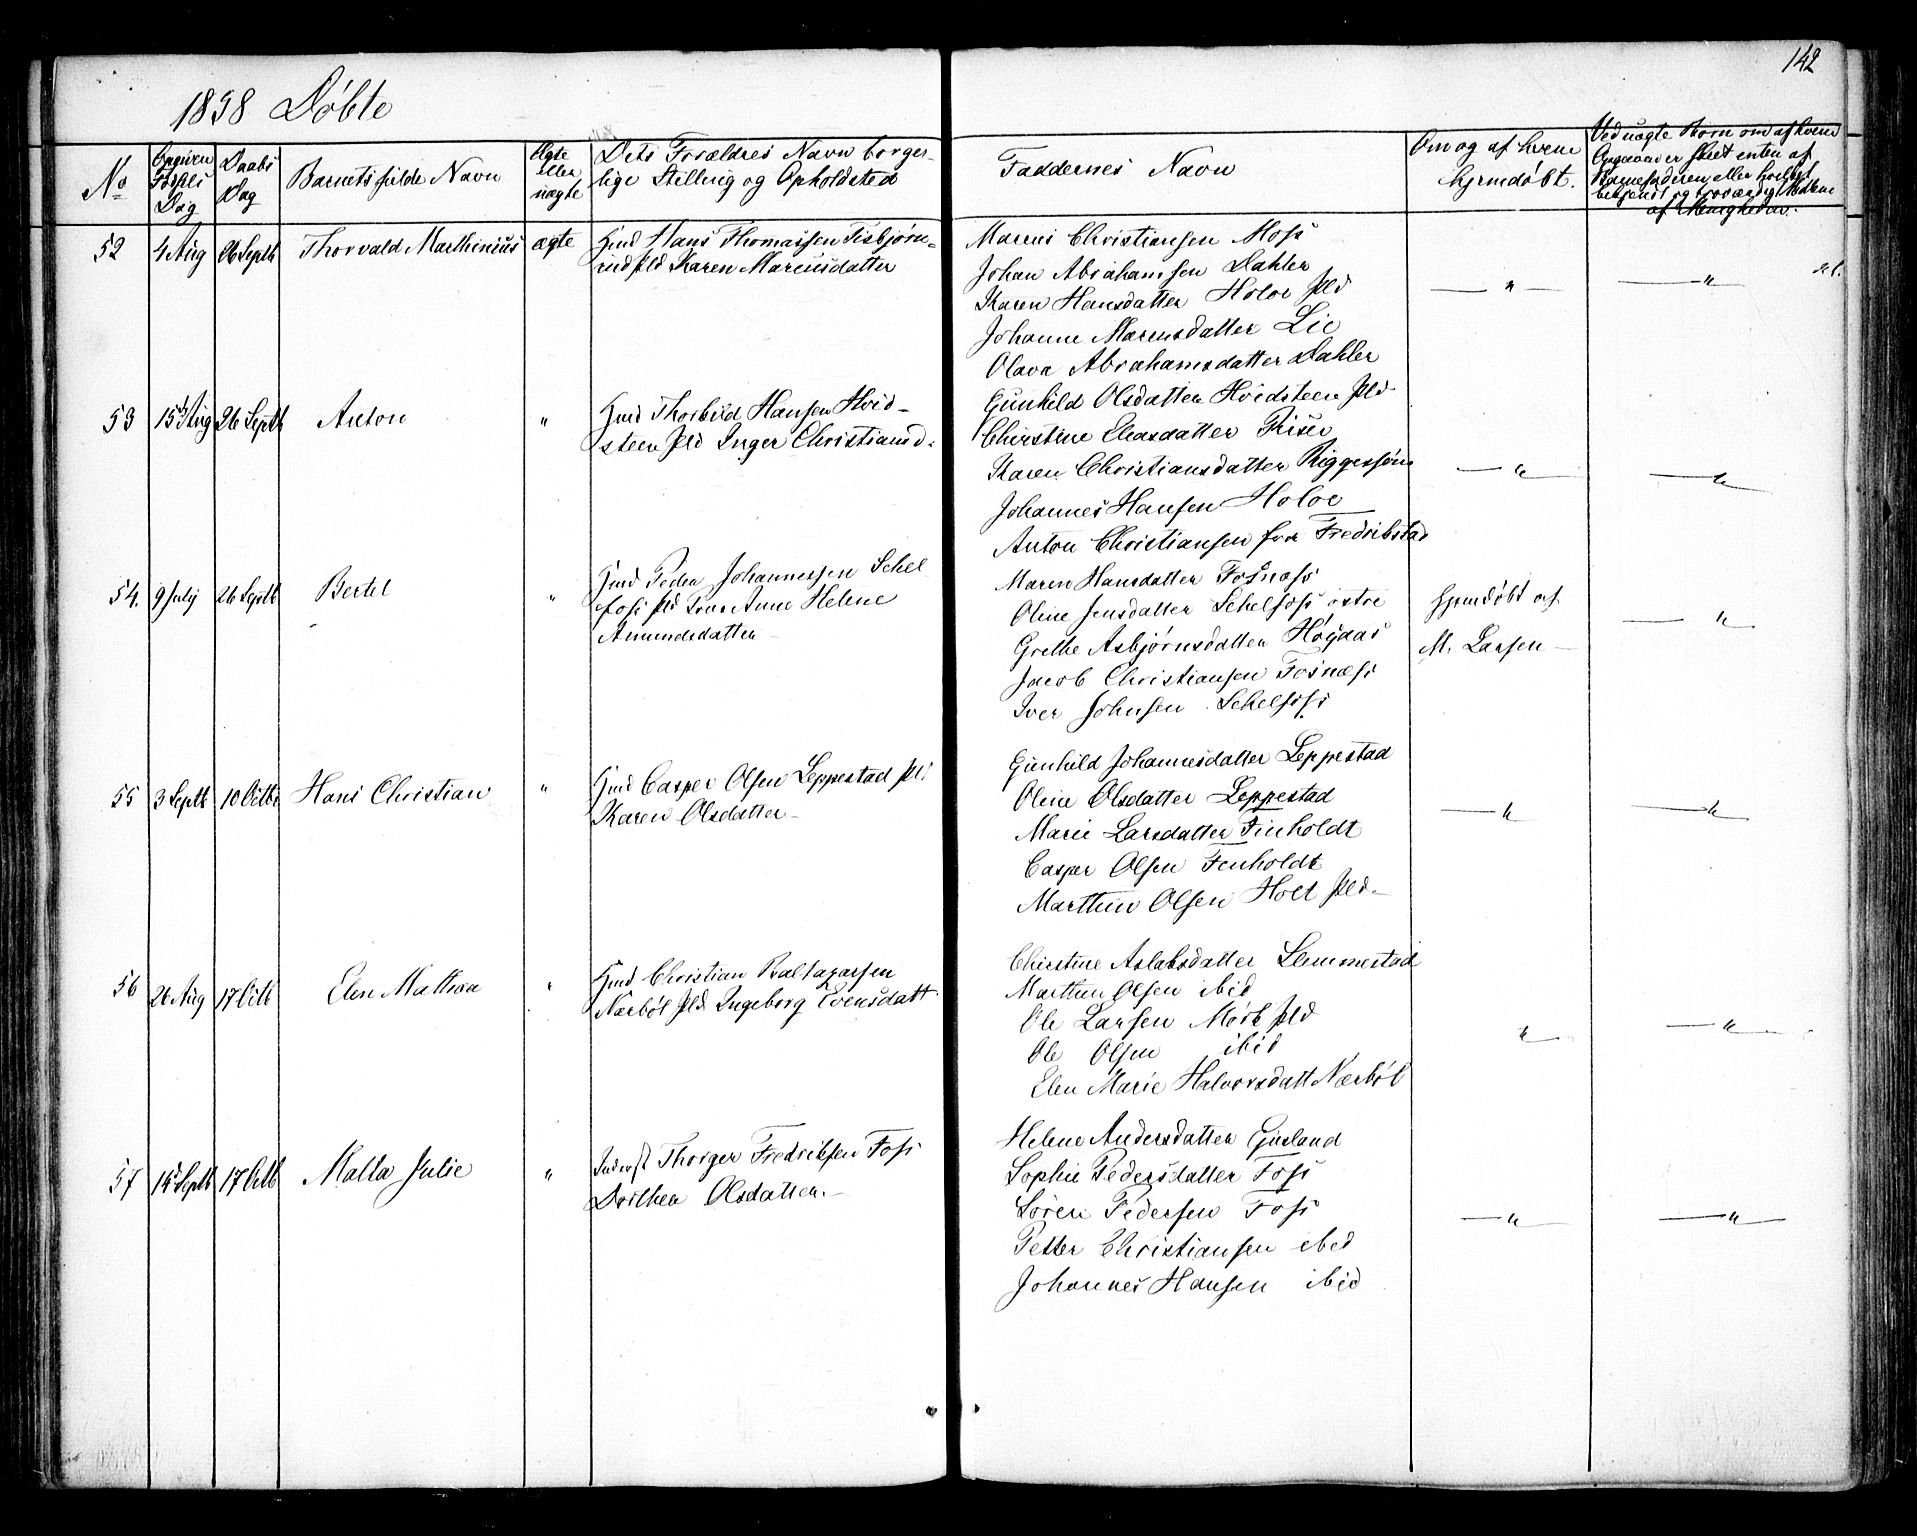 142
1858 Døbte
No
Opgiven Fødsels Dag
Daabs Dag
Barnets fulde Navn
Ægte eller uægte
Dets Forældres Navn borger-
lige Stilling og Opholdsted
Faddernes Navn
Om og af hvem
hjemdøbt.
Ved uægte Børn om af hvem
Opgaven er skeet enten af
Barnefaderen eller hvilket
bekjendt og troværdig Medlem
af Menigheden.
52 4 Aug 26 Septb Thorvald Marthinius ægte
Gmd Hans Thomassen Fisbjørn-
rud Pld Karen Marcusdatter
Marcus Christiansen Moss
Johan Abrahamsen Dahler
Karen Hansdatter Holoe Pld
Johanne Marcusdatter Lie
Olava Abrahamsdatter Dahler
— " — — " —
53 15d Aug 26 Septb Anton "
Gmd Thorbild Hansen Hvid-
steen Pld Inger Christiansd.
Gunhild Olsdatter Hvidsteen Pld.
Christine Eliasdatter Riser
Karen Christiansdatter Riggessøm
Johannes Hansen Holoe
Anton Christiansen fra Fredrikstad
— " — — " —
54. 9 July 26 Septb Bertel "
Gmd Peder Johannessen Schel
foss Pld Anne Helene
Amundsdatter
Maren Hansdatter Fosnæss
Oline Jensdatter Schelfoss østre
Grethe Asbjørnsdatter Høyaas
Jacob Christiansen Fosnæss
Iver Johnsen Schelfoss
hjemdøbt af
M. Larsen —
— " —
55 3 Septb 10 Octb Hans Christian "
Gmd Casper Olsen Leppestad Pld
Karen Olsdatter
Gunhild Johannesdatter Leppestad
Oline Olsdatter Leppestad
Marie Larsdatter Finholdt
Casper Olsen Fenholdt
Marthin Olsen Holt Pld
— " — — " —
56 26 Aug 17 Octb Elen Mathea "
Gmd Christian Baltazarsen
Nærbøl Pld Ingeborg Evensdatt
Christine Aslaksdatter Lemmestad
Marthin Olsen ibid
Ole Larsen Mørk Pld
Ole Olsen ibid
Elen Marie Halvorsdatt Nærbøl
" — — " —
57 15d Septb 17 Octb Malla Julie "
Inderst Thorger Fredriksen Foss
Dorthea Olsdatter.
Helene Andersdatter Gusland
Sophie Pedersdatter Foss
Søren Pedersen Foss
Petter Christiansen ibid
Johannes Hansen ibid
— " — — " —